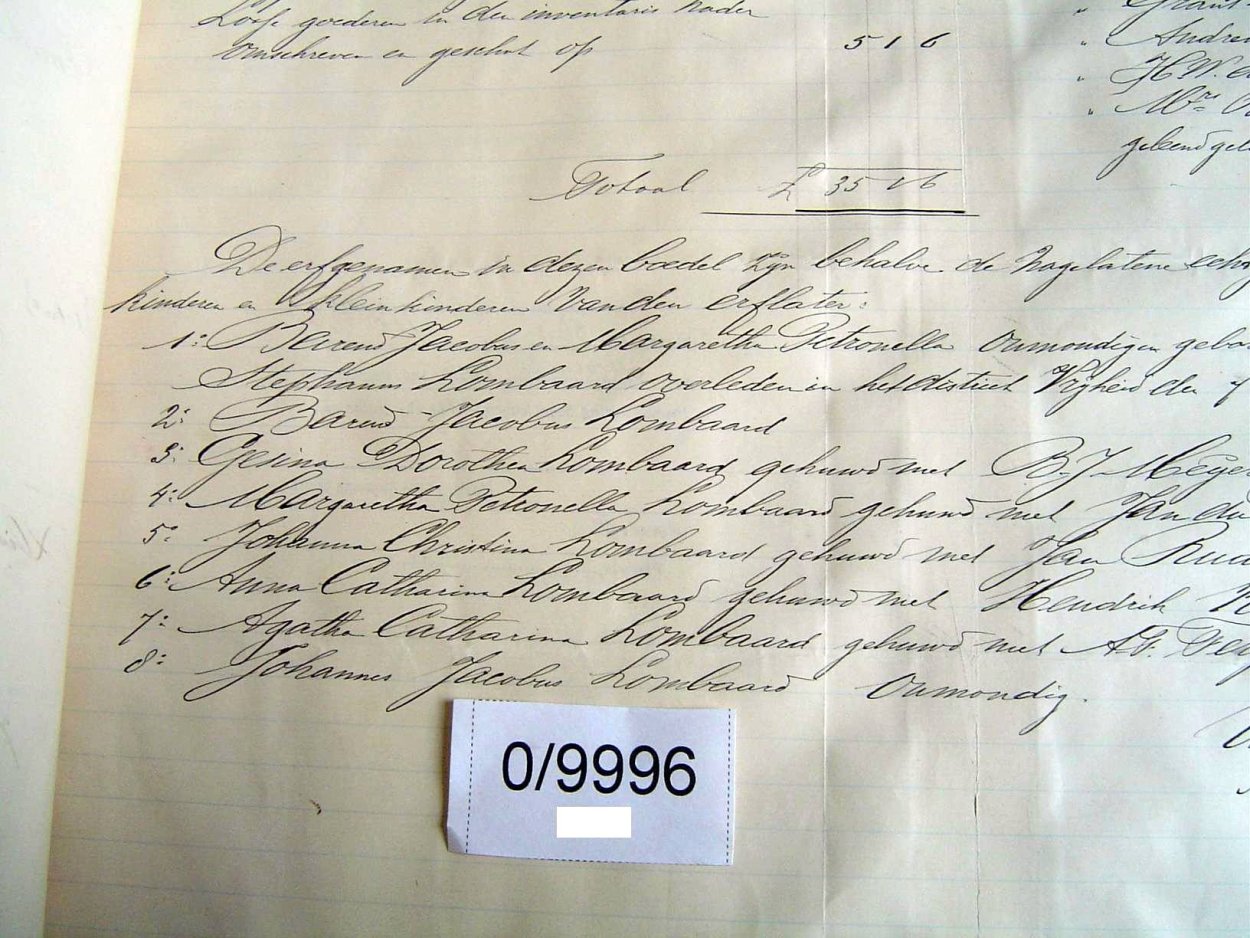 Losse goederen in den inventaris nader
omschreven en geschat op 5 1 6
Andre
H.W.
Mrs
Totaal £ 35 1 6
De erfgenamen in dezen boedel zijn behalve de Nagelatene
kinderen en kleinkinderen van den erflater:
1: Barend Jacobus en Margaretha Petronella Onmondigen
Stephanus Lombaard overleden in het district Vrijheid den
2: Barend Jacobus Lombaard
3: Gesina Dorothea Lombaard gehuwd met B.J. Meyer
4: Margaretha Petronella Lombaard gehuwd met Jan du
5: Johanna Christina Lombaard gehuwd met Jan
6: Anna Catharina Lombaard gehuwd met Hendrik
7: Agatha Catharina Lombaard gehuwd met
8: Johannes Jacobus Lombaard Onmondig.
0/9996